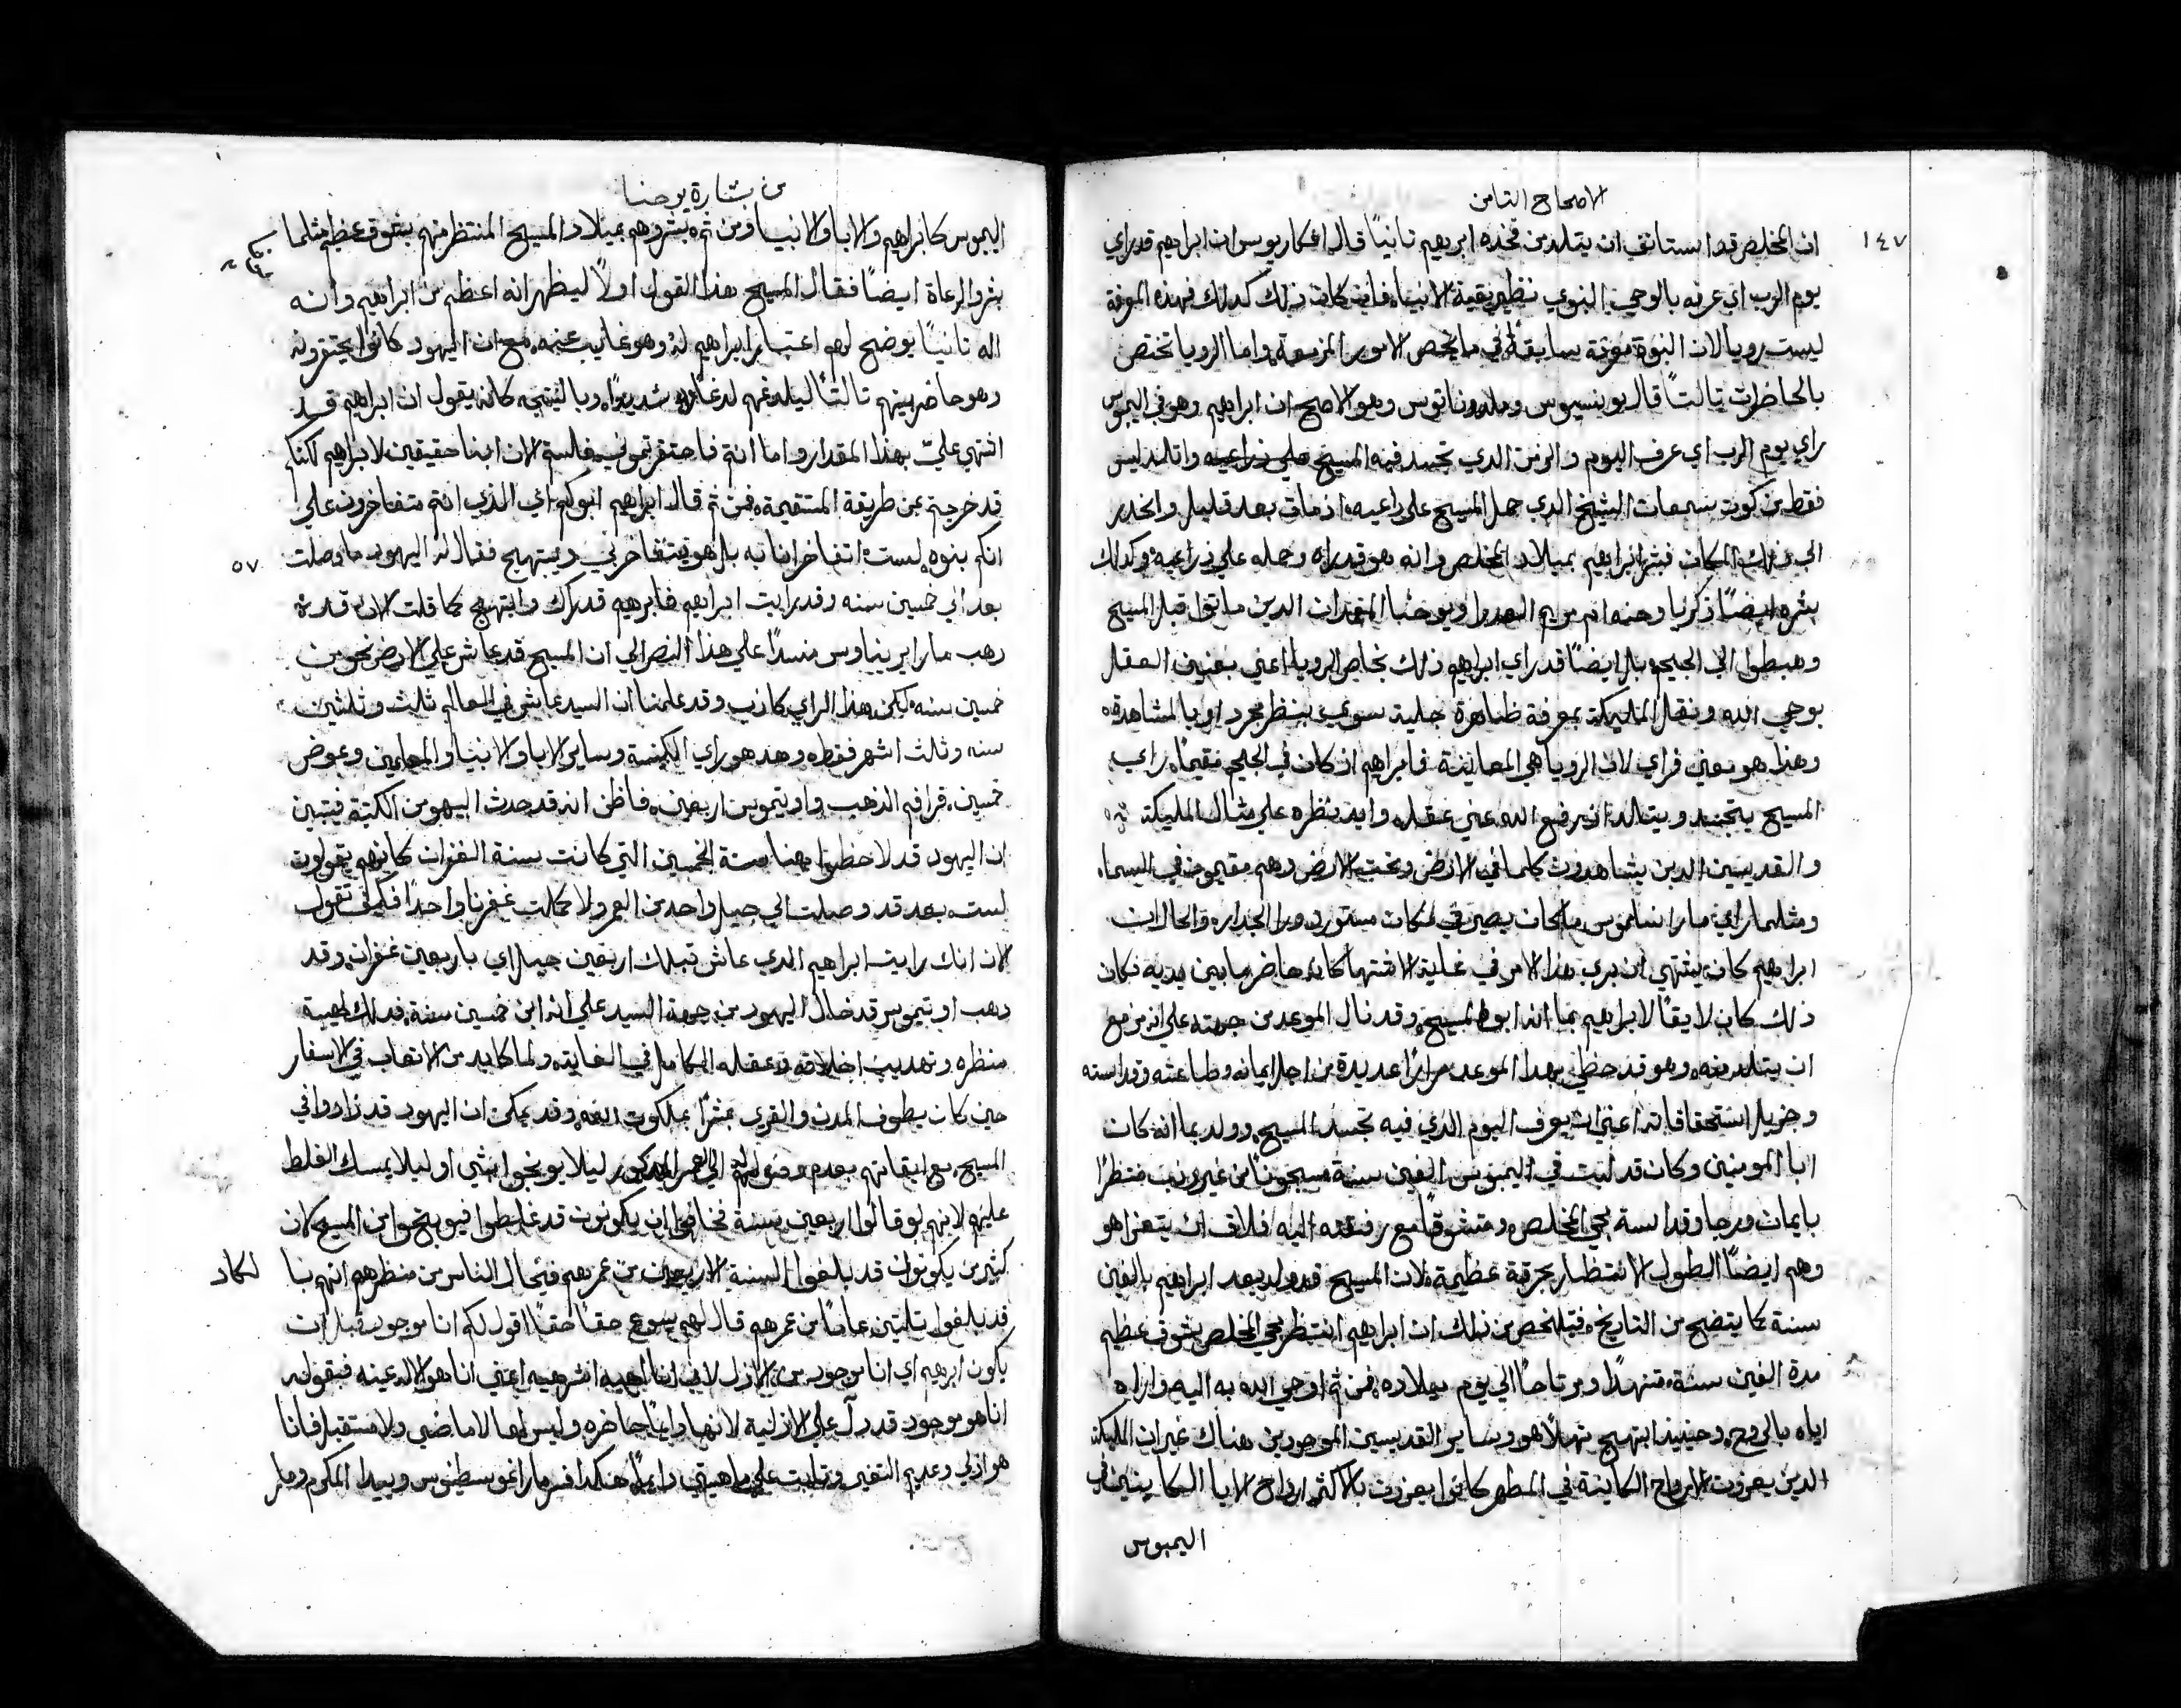 الاصحاح التامن
١٤٧
ان المخلص قد استانف ان يتلد من فخذه ابرهيم تانياً قال اغكاريوس ان ابراهيم قد راي
يوم الرب اي عرفه بالوحي النبوي نظير بقية الانبياء فان كان ذلك كدلك فهذه المعرفة
ليست رويا لان النبوة معرفة سابقة في ما يخص الامور المزمعة واما الرويا تختص
بالحاظرات تالتاً قال يوينسيوس وملدوناتوس وهو الاصح ان ابراهيم وهو في اليمبوس
راي يوم الرب اي عرف اليوم والزمن الدي تجسد فيه المسيح واتلد ليس
فقط من كون سمعان الشيخ الدي حمل المسيح على دراعيه اذ مات بعد قليل وانحدر
الي ذلك المكان فبشر ابراهيم بميلاد المخلص وانه هو قد راه وحمله علي ذراعيه وكدلك
بشره ايضاً زكريا وحنه ام مريم العدرا ويوحنا المعمدان الدين ماتوا قبل المسيح
وهبطوا الي الجحيم بل ايضاً قد راي ابراهيم ذلك بخاص الرويا اعني بعنين العقل
بوحي الله ونقل المليكة بمعرفة ظاهرة جلية سوي بنظر مجرد او بالمشاهدة
وهذا هو يعني فراي لان الرويا هي المعاينة فابراهيم اذ كان في الجحيم مقيماً راي
المسيح يتجسد ويتالد اذ رفع الله عني عقله وايد نظره علي مثال المليكة
والقديسين الدين يشاهدون كلما في الارض وتحت الارض وهم مقيمون في السماء
ومثلما راي مار انسلموس ما كان يصير في مكان مستور ورا الجدار والحال ان
ابراهيم كان يشتهي ان يري هذا الامر في غاية الاشتها كانه حاضر ما بين يديه فكان
ذلك كان لايقاً لابراهيم بما انه ابو المسيح وقد نال الموعد من جهته علي انه مزمع
ان يتلد منه وهو قد حظي بهدا الموعد مراراً عديدة من اجل ايمانه وطاعته وقداسته
وجزيل استحقاقاته اعني ان يعرف اليوم الذي فيه تجسد المسيح وولد بما انه كان
ابا المومنين وكان قد لبت في اليمبوس الفين سنة مسجوناً من غير ذنب منتظراً
بايمان ورجا وقداسة مجي المخلص ومتشوقاً مع رفقته اليه فلاق ان يتعزا هو
وهم ايضاً الطول الانتظار بحرقة عظيمة لان المسيح قد ولد بعد ابراهيم بالفين
سنة كما يتضح من التاريخ فيتلخص من ذلك ان ابراهيم انتظر مجي المخلص بشوق عظيم
مدة الفين سنة متنهداً ومرتاحاً الي يوم ميلاده فمن ثم اوحي الله به اليه واراه
اياه بالروح وحينيذ ابتهج تهللاً هو وساير القديسين الموجودين هناك غير ان المليكة
الدين يعزون الارواح الكاينة في المطهر كانوا يعزون بالاكثر ارواح الابا الكاينين في
اليمبوس
من بشارة يوحنا
اليمبوس كابراهيم والابا والانبيا ومن ثم بشروهم بميلاد المسيح المنتظر منهم بشوق عظيم مثلما
بشر الرعاة ايضاً فقال المسيح هذا القول اولاً ليظهر انه اعظم من ابراهيم وانه
اله تانياً يوضح لهم اعتبار ابراهيم له وهو غايب عنه مع ان اليهود كانوا يحتقرونه
وهو حاضر بينهم تالتاً ليلدغهم لدغاً شديداً وبالنتيجه كانه يقول ان ابراهيم قد
اشتهي عليّ بهذا المقدار واما انتم فاحتقرتموني فلستم الان ابنا حقيقين لابراهيم لكنكم
قد خرجتم عن طريقة المستقيمة فمن ثم قال ابراهيم ابوكم اي الذي انتم متفاخرون علي
انكم بنوه لست اتفاخر انا به بل هو يتفاخر بي ويبتهج فقال له اليهود ما وصلت
٥٧
بعد الي خمسين سنه وقد رايت ابراهيم فابرهيم قد راك وابتهج كما قلت الان قد
دهب مار ايريناوس مسنداً علي هذا النص الي ان المسيح قد عاش علي الارض نحو من
خمسين سنه لكن هذا الراي كاذب وقد علمنا ان السيد عاش في العالم ثلث وثلثين
سنه وثلث اشهر فقط وهذ هو راي الكنيسة وساير الابا والانبيا والمعلمين وعوض
خمسين قرا فم الذهب واوتيموس اربعين فاظن انه قد حدث السهو من الكتبة فيتبين
ان اليهود قد لاحظوا ههنا سنة الخمسين التي كانت سنة الغفران كانهم يقولون
لست بعد قد وصلت الي جيل واحد من العمر ولا كملت غفرنا واحداً فكيف تقول
الان انك رايت ابراهيم الدي عاش قبلك اربعين جيل اي باربعين غفران وقد
دهب اوتيموس قد خال اليهود من جهة السيد علي انه ابن خمسين سنة فدلك لهيبة
منظره وتهديب اخلاقه وعقله الكامل في الغاية ولما كابد من الاتعاب في الاسفار
حين كان يطوف المدن والقري مبشراً بملكوت الله وقد يمكن ان اليهود قد زادوا في
المسيح مع ايقانهم بعدم وصوله الي العمر المدكور ليلا يوبخوا بشي او ليلا يمسك الغلط
عليهم لانهم لو قالوا اربعين سنة فخافوا ان يكونون قد غلطوا فيوبخوا من المسيح لان
كثيرين يكونون قد بلغوا السنة الاربعين من عمرهم فيخال الناس من منظرهم انهم بنا
لكاد
قد بلغوا ثلثين عاماً من عمرهم قال لهم يسوع حقاً حقاً اقول لكم انا موجود قبل ان
يكون ابرهيم اي انا موجود من الازل لاني انا اهيه اشر هيه اعني انا هو الاله عينه فبقوله
انا هو موجود قد دل علي الازلية لانها دايماً حاضره وليس لها لا ماضي ولا مستقبل فانا
هو ازلي وعديم التغير وتابت علي ماهيتي دايماً هكدا فسر مار اغوسطينوس وبيدا المكرم ومار